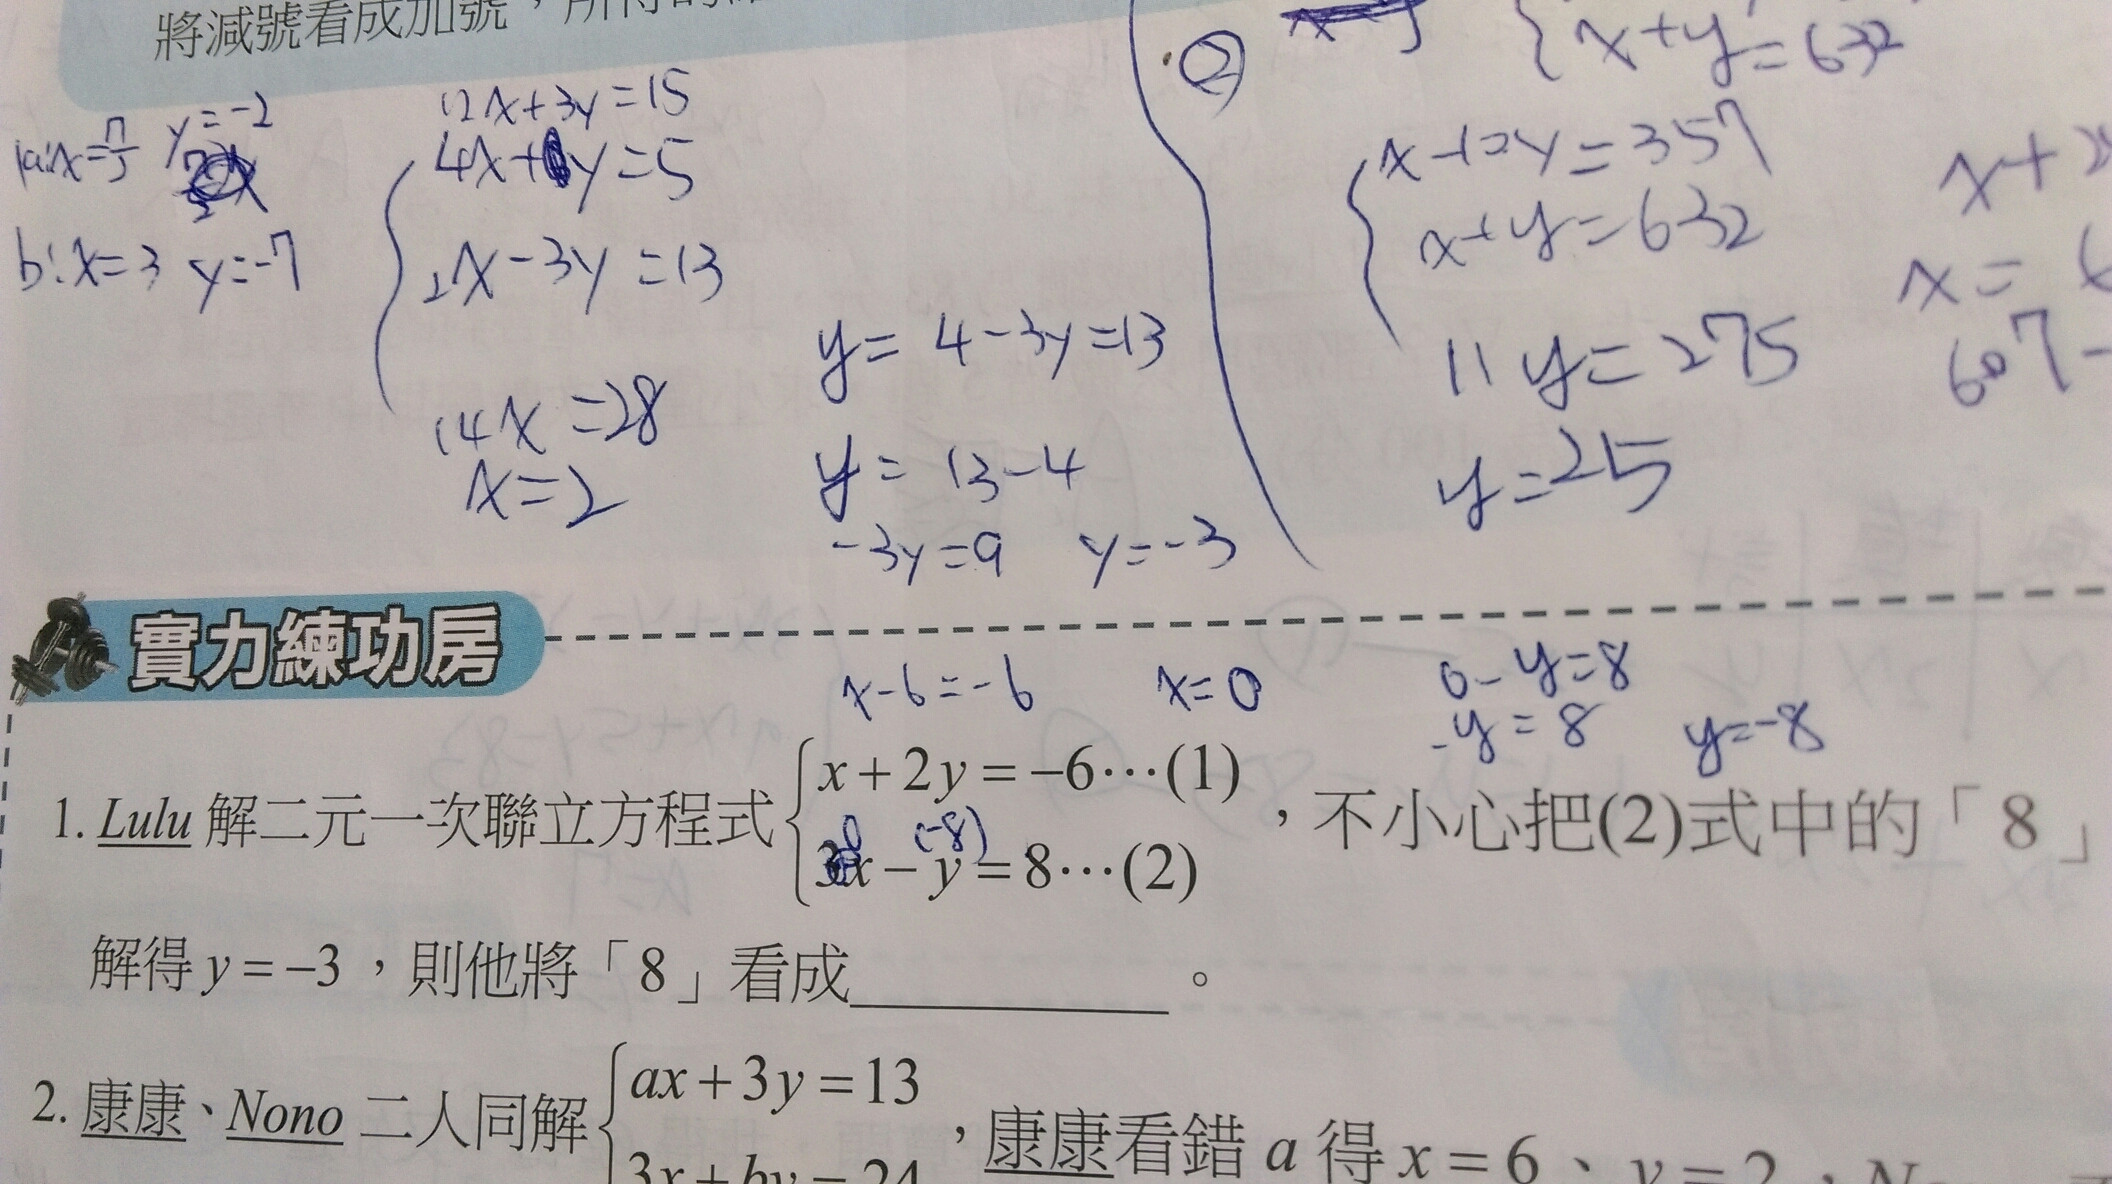 將減號看成加號，所得的
②
x+y=632
y=-2
b:x=3 y=-7
12x+3y=15
4x+y=5
2x-3y=13
14x=28
x=2
y= 4-3y=13
y= 13-4
-3y=9 y=-3
x+12y=357
x+y=632
11y=275
y=25
x+
x=
607-
實力練功房
x-6=-6 x=0 0-y=8
-y=8 y=-8
1. Lulu 解二元一次聯立方程式 x+2y=-6…(1)
0 (-8)
3x-y=8…(2) ，不小心把(2)式中的「8」
解得y=-3，則他將「8」看成＿＿＿＿。
2. 康康、Nono 二人同解 ax+3y=13
3x+by=24 ，康康看錯 a 得 x=6、y=2，